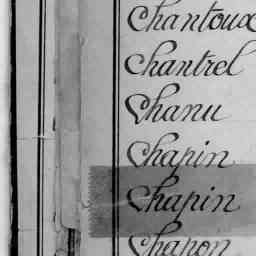 Chantoux
Chantrel
Chanu
Chapin
Chapin
Chapon